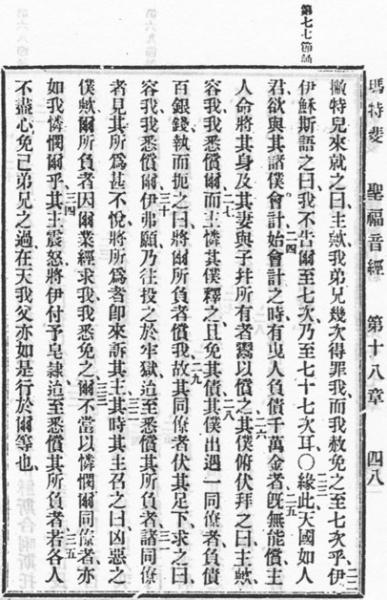 第七七節
瑪特斐 聖福音經 第十八章 四八
撇特兒來就之曰、主歟、我弟兄幾次得罪我、而我赦免之至七次乎、伊 二二
伊穌斯語之曰、我不告爾至七次、乃至七十七次耳、〇緣此天國如人 二三
君欲與其諸僕會計、二四始會計之時、有曳人負債千萬金者、二五旣無能償、主
人命將其身及其妻與子幷所有者鬻以償之、二六其僕俯伏拜之曰、主歟、
容我我悉償爾、二七而主憐其僕釋之、且免其債、二八其僕出遇一同僚者負債
百銀錢、執而扼之曰、將爾所負者償我、二九故其同僚者伏其足下、求之曰、
容我我悉償爾、三十伊弗願、乃往投之於牢獄、迨至悉償其所負者、三一諸同僚
者見其所爲甚不悅、將所爲者卽來訴其主、三二其時其主召之曰、凶惡之
僕歟、爾所負者、因爾業經求我、我悉免之、三三爾不當以憐憫爾同僚者、亦
如我憐憫爾乎、三四其主震怒、將伊付予皂隸、迨至悉償其所負者、三五若各人
不盡心免己弟兄之過、在天我父亦如是行於爾等也、